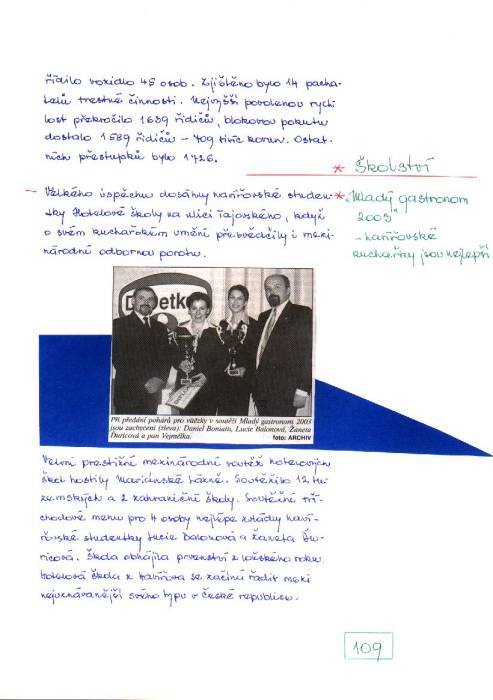 řídilo vozidlo 45 osob. Zjištěno bylo 14 pacha-
telů trestné činnosti. Nejvyšší povolenou rych
lost překročilo 1689 řidičů, blokovou pokutu
dostalo 1589 řidičů – 709 tisíc korun. Ostat-
ních přestupků bylo 1726.
* Školství
– Velkého úspěchu dosáhly havířovské studen-
tky Hotelové školy na ulici Tajovského, když
o svém kuchařském umění přesvědčily i mezi-
národní odbornou porotu.
* "Mladý gastronom
2003"
– havířovské
kuchařky jsou nejlepší
Dr. Oetker
Při předání pohárů pro vítězky v soutěži Mladý gastronom 2003
jsou zachyceni (zleva): Daniel Boniatti, Lucie Balonová, Žaneta
Ďuricová a pan Vejmělka.
foto: ARCHIV
Velmi prestižní mezinárodní soutěž hotelových
škol hostily Mariánské Lázně. Soutěžilo 12 tu-
zemských a 2 zahraniční školy. Soutěžní tří-
chodové menu pro 4 osoby nejlépe zvládly haví-
řovské studentky Lucie Balonová a Žaneta Ďu-
ricová. Škola obhájila prvenství z loňského roku.
Hotelová škola z Havířova se začíná řadit mezi
nejuznávanější svého typu v České republice.
109